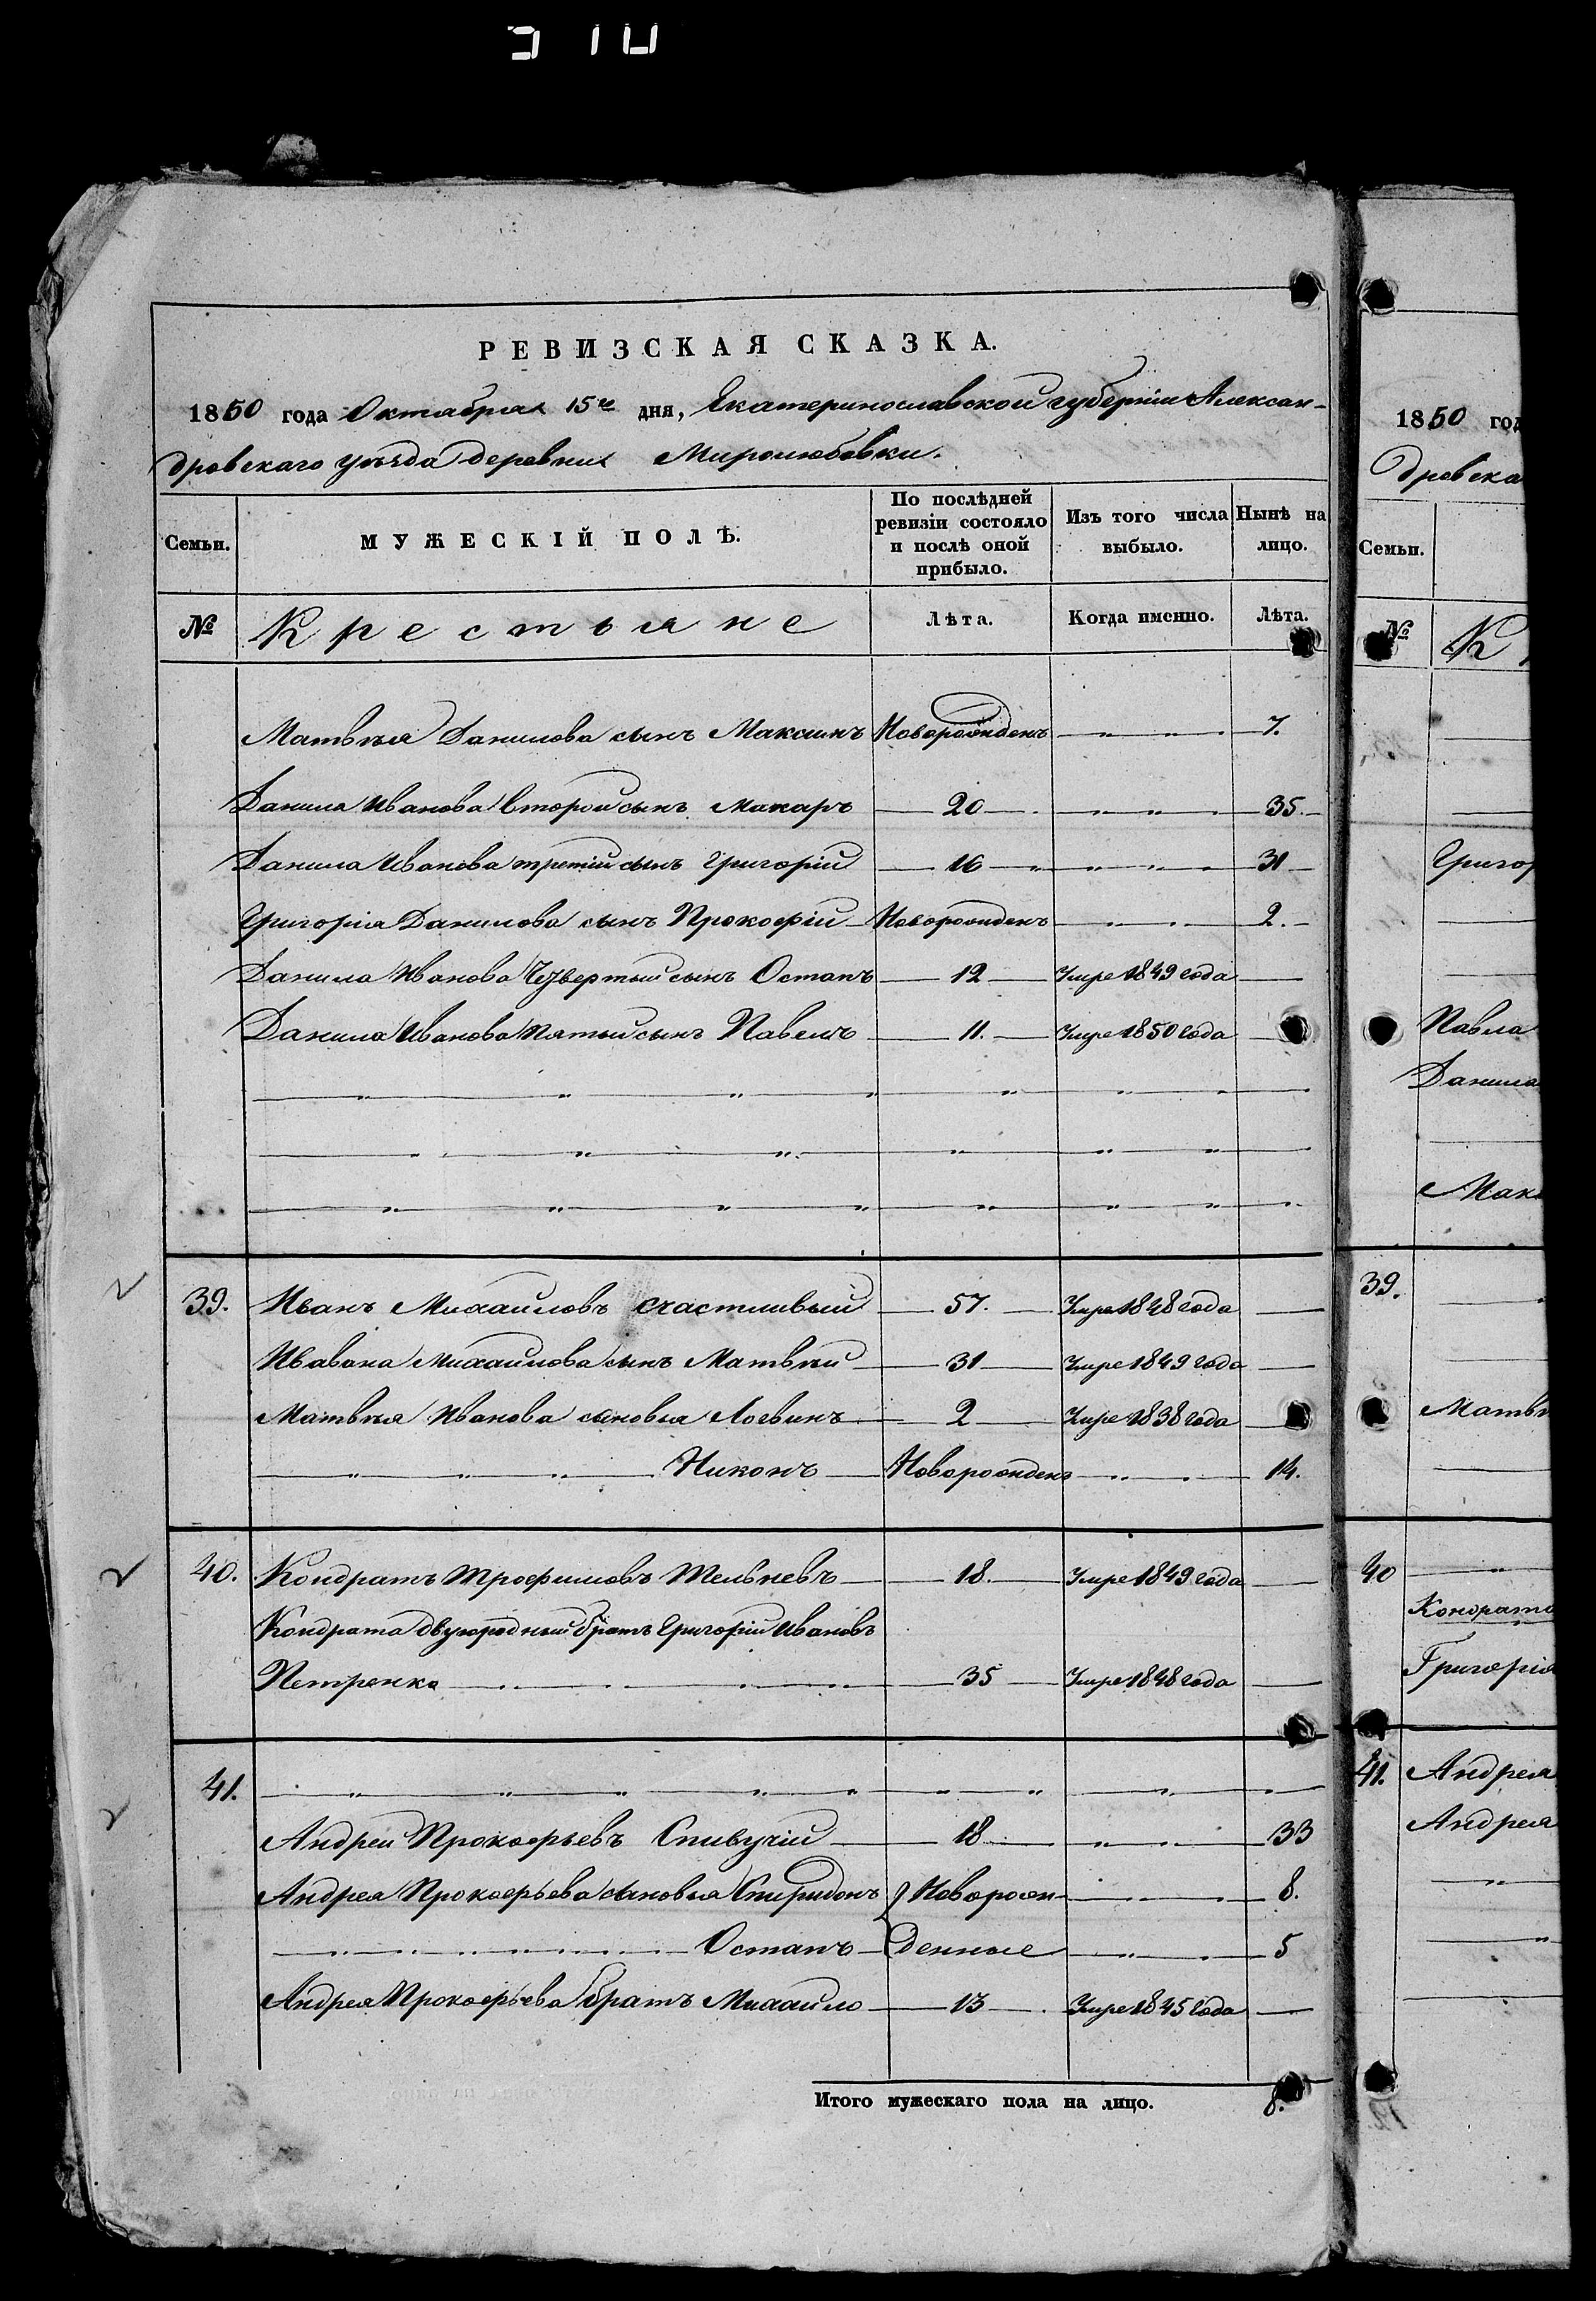 РЕВИЗСКАЯ СКАЗКА.
1850 года Октября 15го дня, Екатеринославской губернiи Алексан-
дровскаго уѣзда деревни Миролюбовки.
Семьи. МУЖЕСКIЙ ПОЛЪ. По послѣдней ревизiи состояло и послѣ оной прибыло. Изъ того числа выбыло. Нынѣ на лицо.
№ Крестьяне Лѣта. Когда именно. Лѣта.
Матвѣя Данилова сынъ Максимъ Новорожденъ 7.
Данила Иванова второй сынъ Макаръ 20 35
Данила Иванова третiй сынъ Григорiй 16 31
Григорiя Данилова сынъ Прокофiй Новорожденъ 2.
Данила Иванова Четвертый сынъ Остапъ 12 Умре 1849 года
Данила Иванова пятый сынъ Павелъ 11. Умре 1850 года
39. Иванъ Михайловъ Счастливый 57. Умре 1848 года
Ивавана Михайлова сынъ Матвѣй 31 Умре 1849 года
Матвѣя Иванова сыновья Логвинъ 2 Умре 1838 года
Никонъ Новорожденъ 14.
40. Кондратъ Трофимовъ 18. Умре 1849 года
Кондрата двуюродный братъ Григорiй Ивановъ
Петренко 35 Умре 1848 года
41.
Андрей Прокофьевъ Спивучiй 18 33
Андрея Прокофьева сыновья Спиридонъ Новорож- 8.
Остапъ денные 5
Андрея Прокофьева братъ Михайло 13 Умре 1845 года
Итого мужескаго пола на лицо. 8.
1850 год
дровска
Семьи.
№ К
Григор
Павла
Данила
Мак
39.
Матвѣ
40
Кондрата
Григорiя
41. Андрея
Андрея